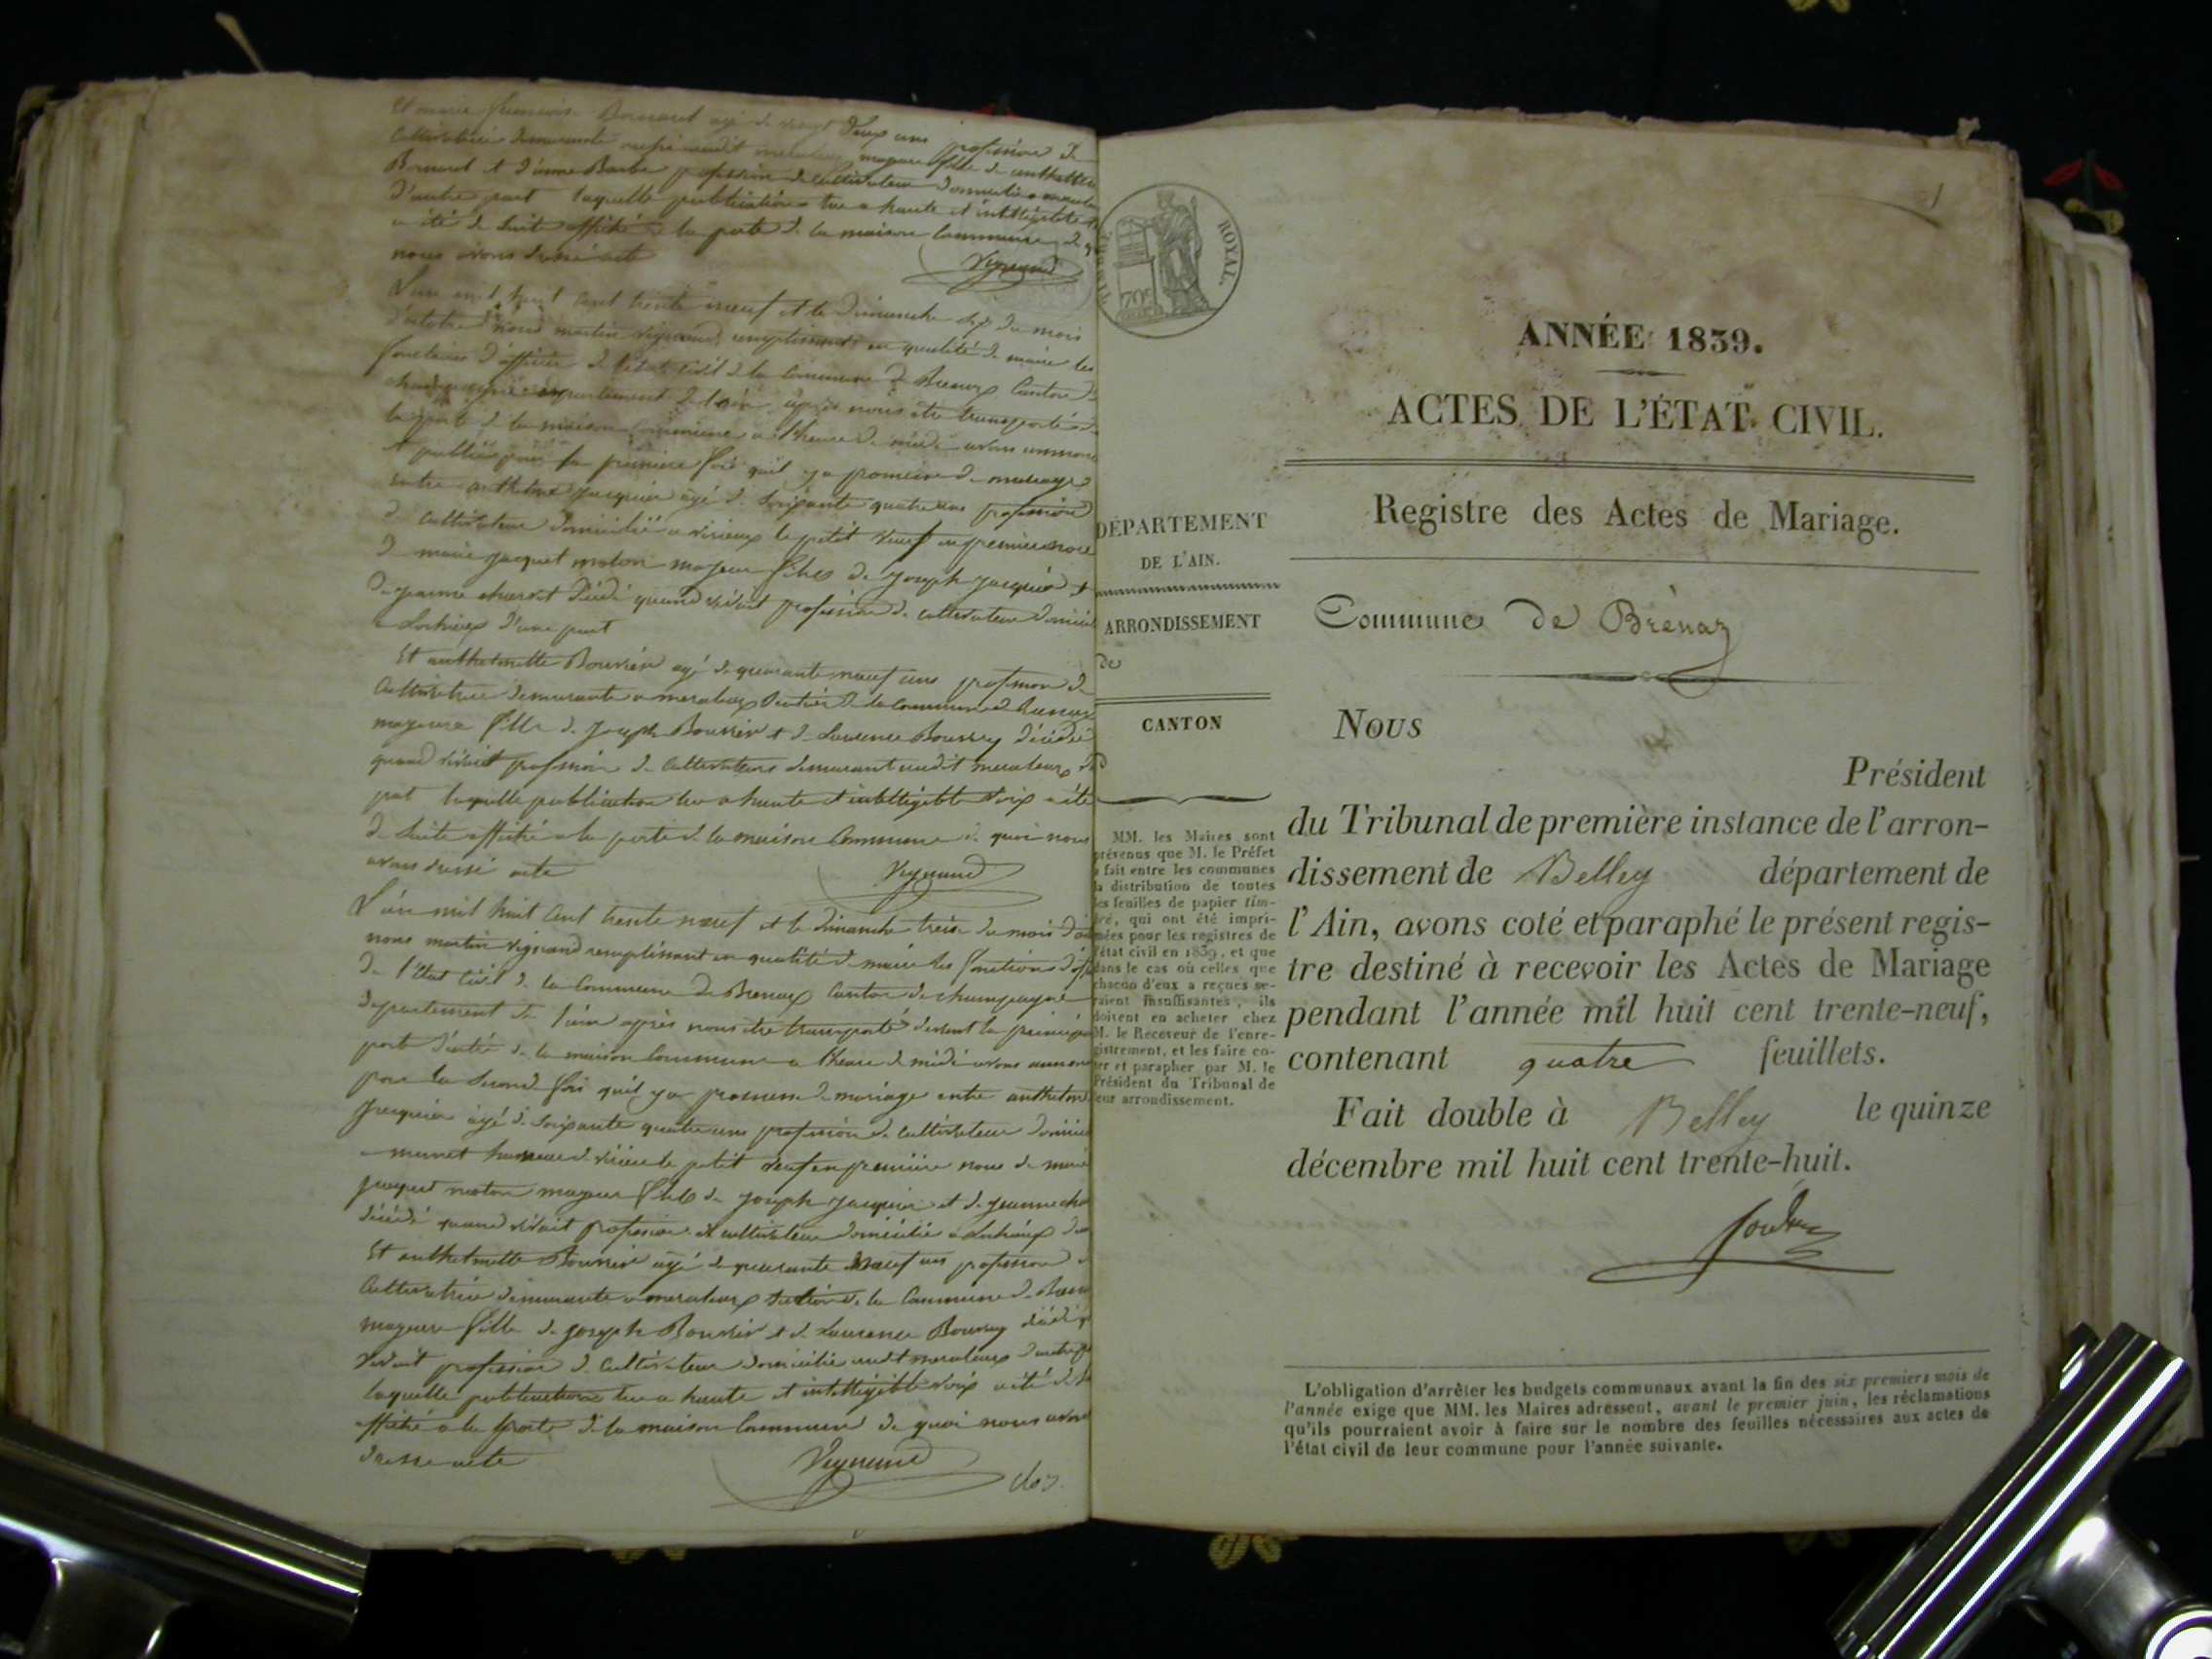 Et marie francoise Bornard agé de vingt Deux ans profession de
cultivatrice demeurante audit meraleaz majeure fille de anthelme
Bornard et d'anne Barbe profession de cultivateur domicilié a
d'autre part laquelle publication lue a haute et intelligible
a été de suite affiché a la porte de la maison commune de
nous avons dressé acte
Vignand
L'an mil huit cent trente neuf et le dimanche six du mois
d'octobre nous martin vignand remplissant en qualité de maire les
fonctions d'officier de l'état civil de la commune de Brenaz canton de
champagne département de l'ain après nous etre transporté
la porte de la maison commune a l'heure de midi avons annoncé
et publié pour la premiere fois quil y a promesse de mariage
entre anthelme jacquin agé de soixante quatre ans profession
de cultivateur domicilié a virieux le petit veuf en premiere noce
de marie jacquet majeur fils de joseph jacquin et
De jeanne décédé quand vivait profession de cultivateur
a Lochieux d'une part
Et anthelmette Bouvier agé de quarante neuf ans profession de
cultivatrice demeurante a meraleaz section de la commune de Brenaz
majeure fille de joseph Bouvier et de Laurence décédé
quand vivait profession de cultivateurs demeurant audit meraleaz
part laquelle publication lue a haute et intelligible voix a été
de suite affiché a la porte de la maison commune de quoi nous
avons dressé acte
Vignand
L'an mil huit cent trente neuf et le dimanche treize du mois
nous martin vignand remplissant en qualité de maire les fonctions
De l'état civil de la commune de Brenaz canton de champagne
département de l'ain après nous etre transporté devant la
porte d'entré de la maison commune a l'heure de midi avons
pour la second fois quil y a promesse de mariage entre
jacquin agé de soixante quatre ans profession de cultivateur
a hameau de virieu le petit veuf en premiere noce de
jacquet majeur fils de joseph jacquin et de jeanne
décédé quand vivait profession de cultivateur domicilié a Lochieux
Et anthelmette Bouvier agé de quarante neuf ans profession
cultivatrice demeurante a meraleaz section de la commune de
majeure fille de joseph Bouvier et de Laurence
vivait profession de cultivateur domicilié audit meraleaz
laquelle publication lue a haute et intelligible voix a été de
affiché a la porte de la maison commune de quoi nous avons
dressé acte
Vignand
clos
1
ROYAL
ANNÉE 1839.
ACTES DE L'ÉTAT CIVIL.
Registre des Actes de Mariage.
DÉPARTEMENT
DE L'AIN.
ARRONDISSEMENT
de
CANTON
d
MM. les Maires sont
prévenus que M. le Préfet
a fait entre les communes
la distribution de toutes
les feuilles de papier tim-
bré, qui ont été impri-
mées pour les registres de
l'état civil en 1839, et que
dans le cas où celles que
chacun d'eux a reçues se-
raient insuffisantes, ils
doivent en acheter chez
M. le Receveur de l'enre-
gistrement, et les faire co-
ter et parapher par M. le
Président du Tribunal de
leur arrondissement.
Commune de Brénaz
Nous
Président
du Tribunal de première instance de l'arron-
dissement de Belley département de
l'Ain, avons coté et paraphé le présent regis-
tre destiné à recevoir les Actes de Mariage
pendant l'année mil huit cent trente-neuf,
contenant quatre feuillets.
Fait double à Belley le quinze
décembre mil huit cent trente-huit.
L'obligation d'arrêter les budgets communaux avant la fin des six premiers mois de
l'année exige que MM. les Maires adressent, avant le premier juin, les réclamations
qu'ils pourraient avoir à faire sur le nombre des feuilles nécessaires aux actes de
l'état civil de leur commune pour l'année suivante.